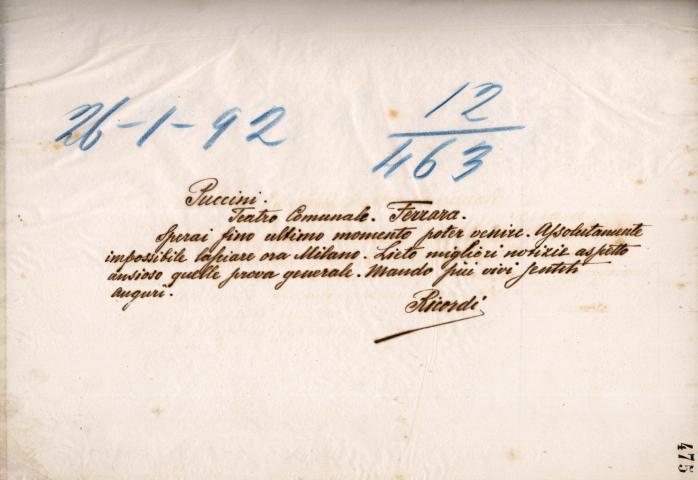 26-1-92
12
463
Puccini.
Teatro Comunale. Ferrara.
Sperai fino ultimo momento poter venire. Assolutamente
impossibile lasciare ora Milano. Lieto migliori notizie aspetto
ansioso quelle prova generale. Mando più vivi sentiti
auguri.
Ricordi
475